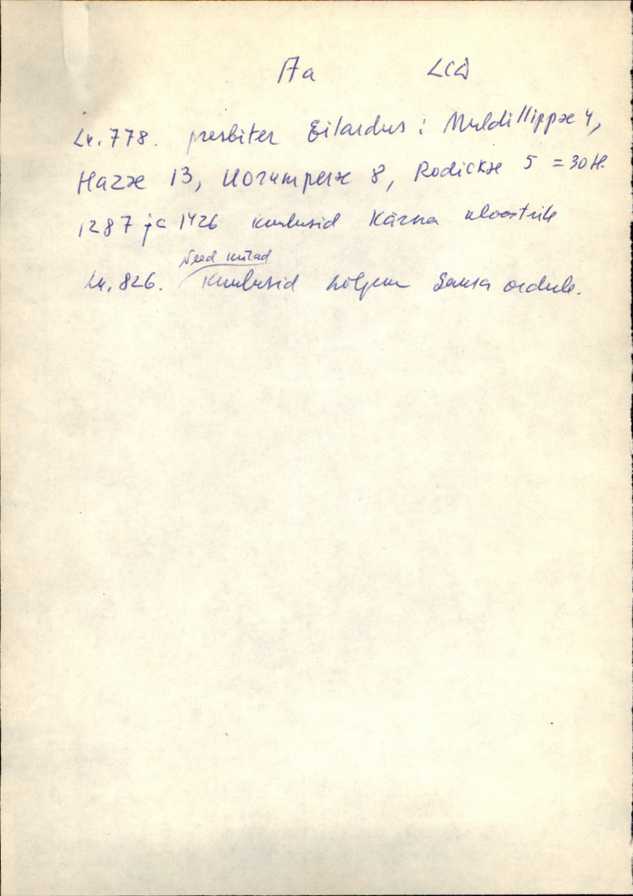 Aa LCD
Lk. 778. presbiter Eilardus: Muldillippæ 4,
Hazæ 13, Uorumperæ 8, Rodickæ 5 = 30 H.
1287 ja 1426 kuulusid Kärna kloostrile
Need külad
Lk. 826. kuulusid hiljem Saksa ordule.